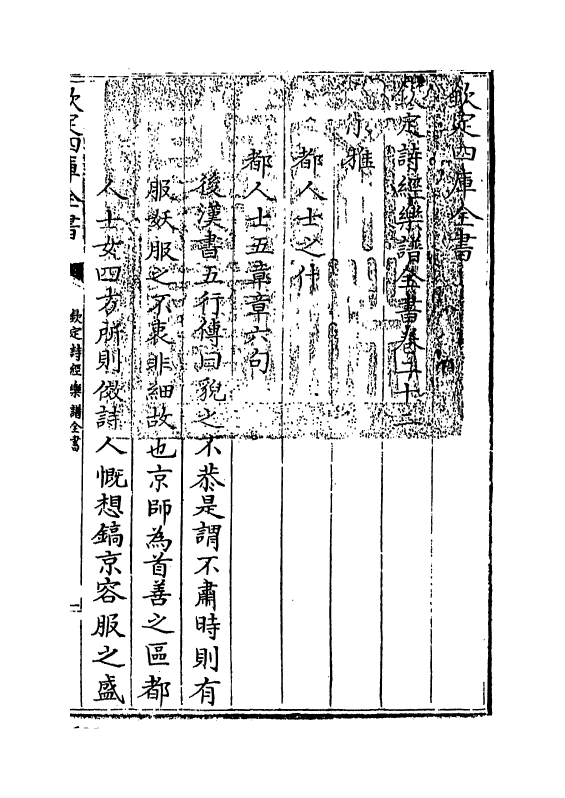 欽定四庫全書
欽定詩經樂譜全書卷二十二
小雅
都人士之什
都人士五章章六句
後漢書五行傳曰貌之不恭是謂不肅時則有
服妖服之不衷非細故也京師為首善之區都
人士女四方所則傚詩人慨想鎬京容服之盛
欽定四庫全書
欽定詩經樂譜全書
一